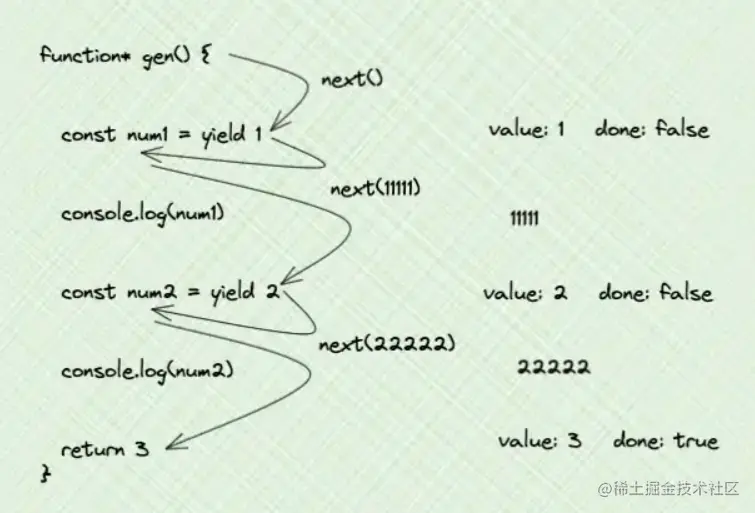 function* gen() {
next()
const num1 = yield 1 value: 1 done: false
next(11111)
console.log(num1) 11111
const num2 = yield 2 value: 2 done: false
next(22222)
console.log(num2) 22222
return 3 value: 3 done: true
}
@稀土掘金技术社区